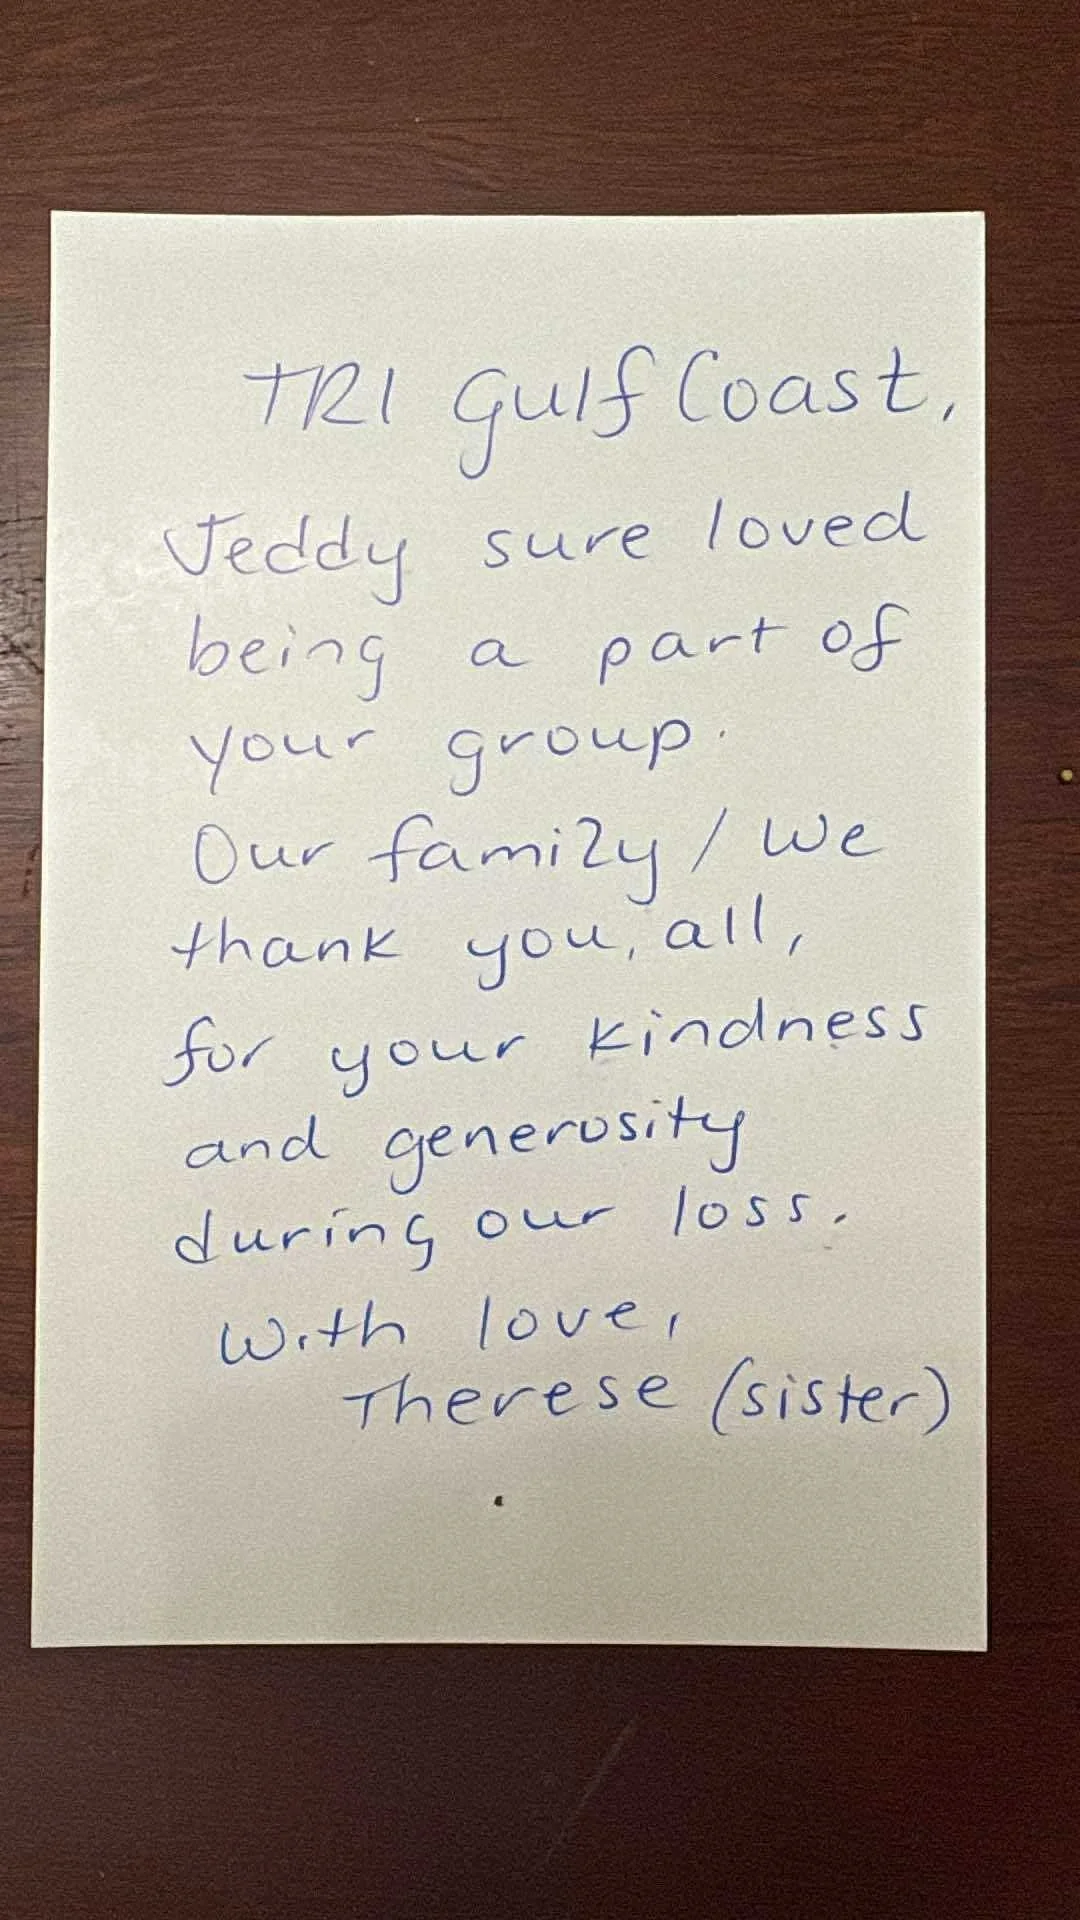 TRI Gulf Coast,
Jeddy sure loved
being a part of
your group.
Our family / We
thank you, all,
for your kindness
and generosity
during our loss.
With love,
Therese (sister)